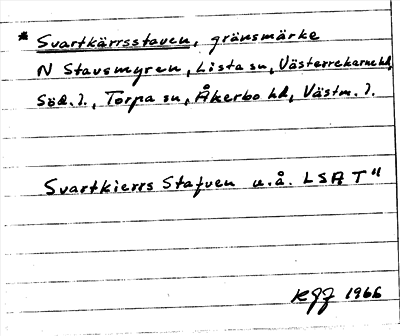 * Svartkärrsstaven, gränsmärke
N Stavsmyren, Lista sn, Västerrekarne hd,
Söd. l., Torpa sn, Åkerbo hd, Västm. l.
Svartkierrs Stafven u.å. LSA T"
KGF 1966